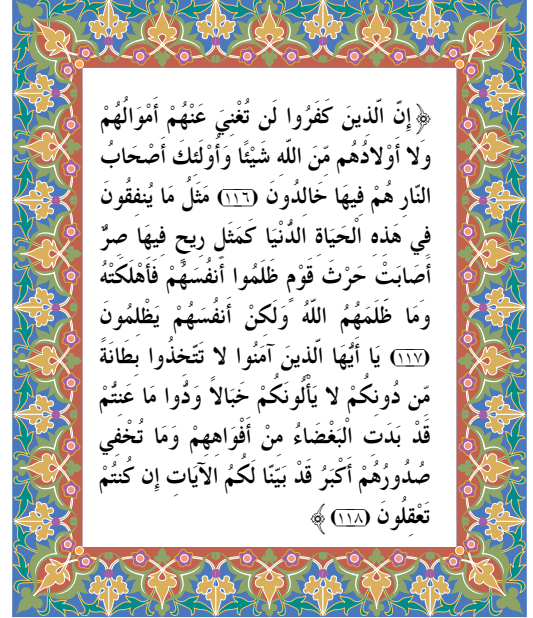 ﴿ إِنَّ الَّذِينَ كَفَرُوا لَن تُغْنِيَ عَنْهُمْ أَمْوَالُهُمْ
وَلا أَوْلادُهُم مِّنَ اللَّهِ شَيْئًا وَأُوْلَئِكَ أَصْحَابُ
النَّارِ هُمْ فِيهَا خَالِدُونَ (١١٦) مَثَلُ مَا يُنفِقُونَ
فِي هَذِهِ الْحَيَاةِ الدُّنْيَا كَمَثَلِ رِيحٍ فِيهَا صِرٌّ
أَصَابَتْ حَرْثَ قَوْمٍ ظَلَمُوا أَنفُسَهُمْ فَأَهْلَكَتْهُ
وَمَا ظَلَمَهُمُ اللَّهُ وَلَكِنْ أَنفُسَهُمْ يَظْلِمُونَ
(١١٧) يَا أَيُّهَا الَّذِينَ آمَنُوا لا تَتَّخِذُوا بِطَانَةً
مِّن دُونِكُمْ لا يَأْلُونَكُمْ خَبَالاً وَدُّوا مَا عَنِتُّمْ
قَدْ بَدَتِ الْبَغْضَاءُ مِنْ أَفْوَاهِهِمْ وَمَا تُخْفِي
صُدُورُهُمْ أَكْبَرُ قَدْ بَيَّنَّا لَكُمُ الآيَاتِ إِن كُنتُمْ
تَعْقِلُونَ (١١٨) ﴾